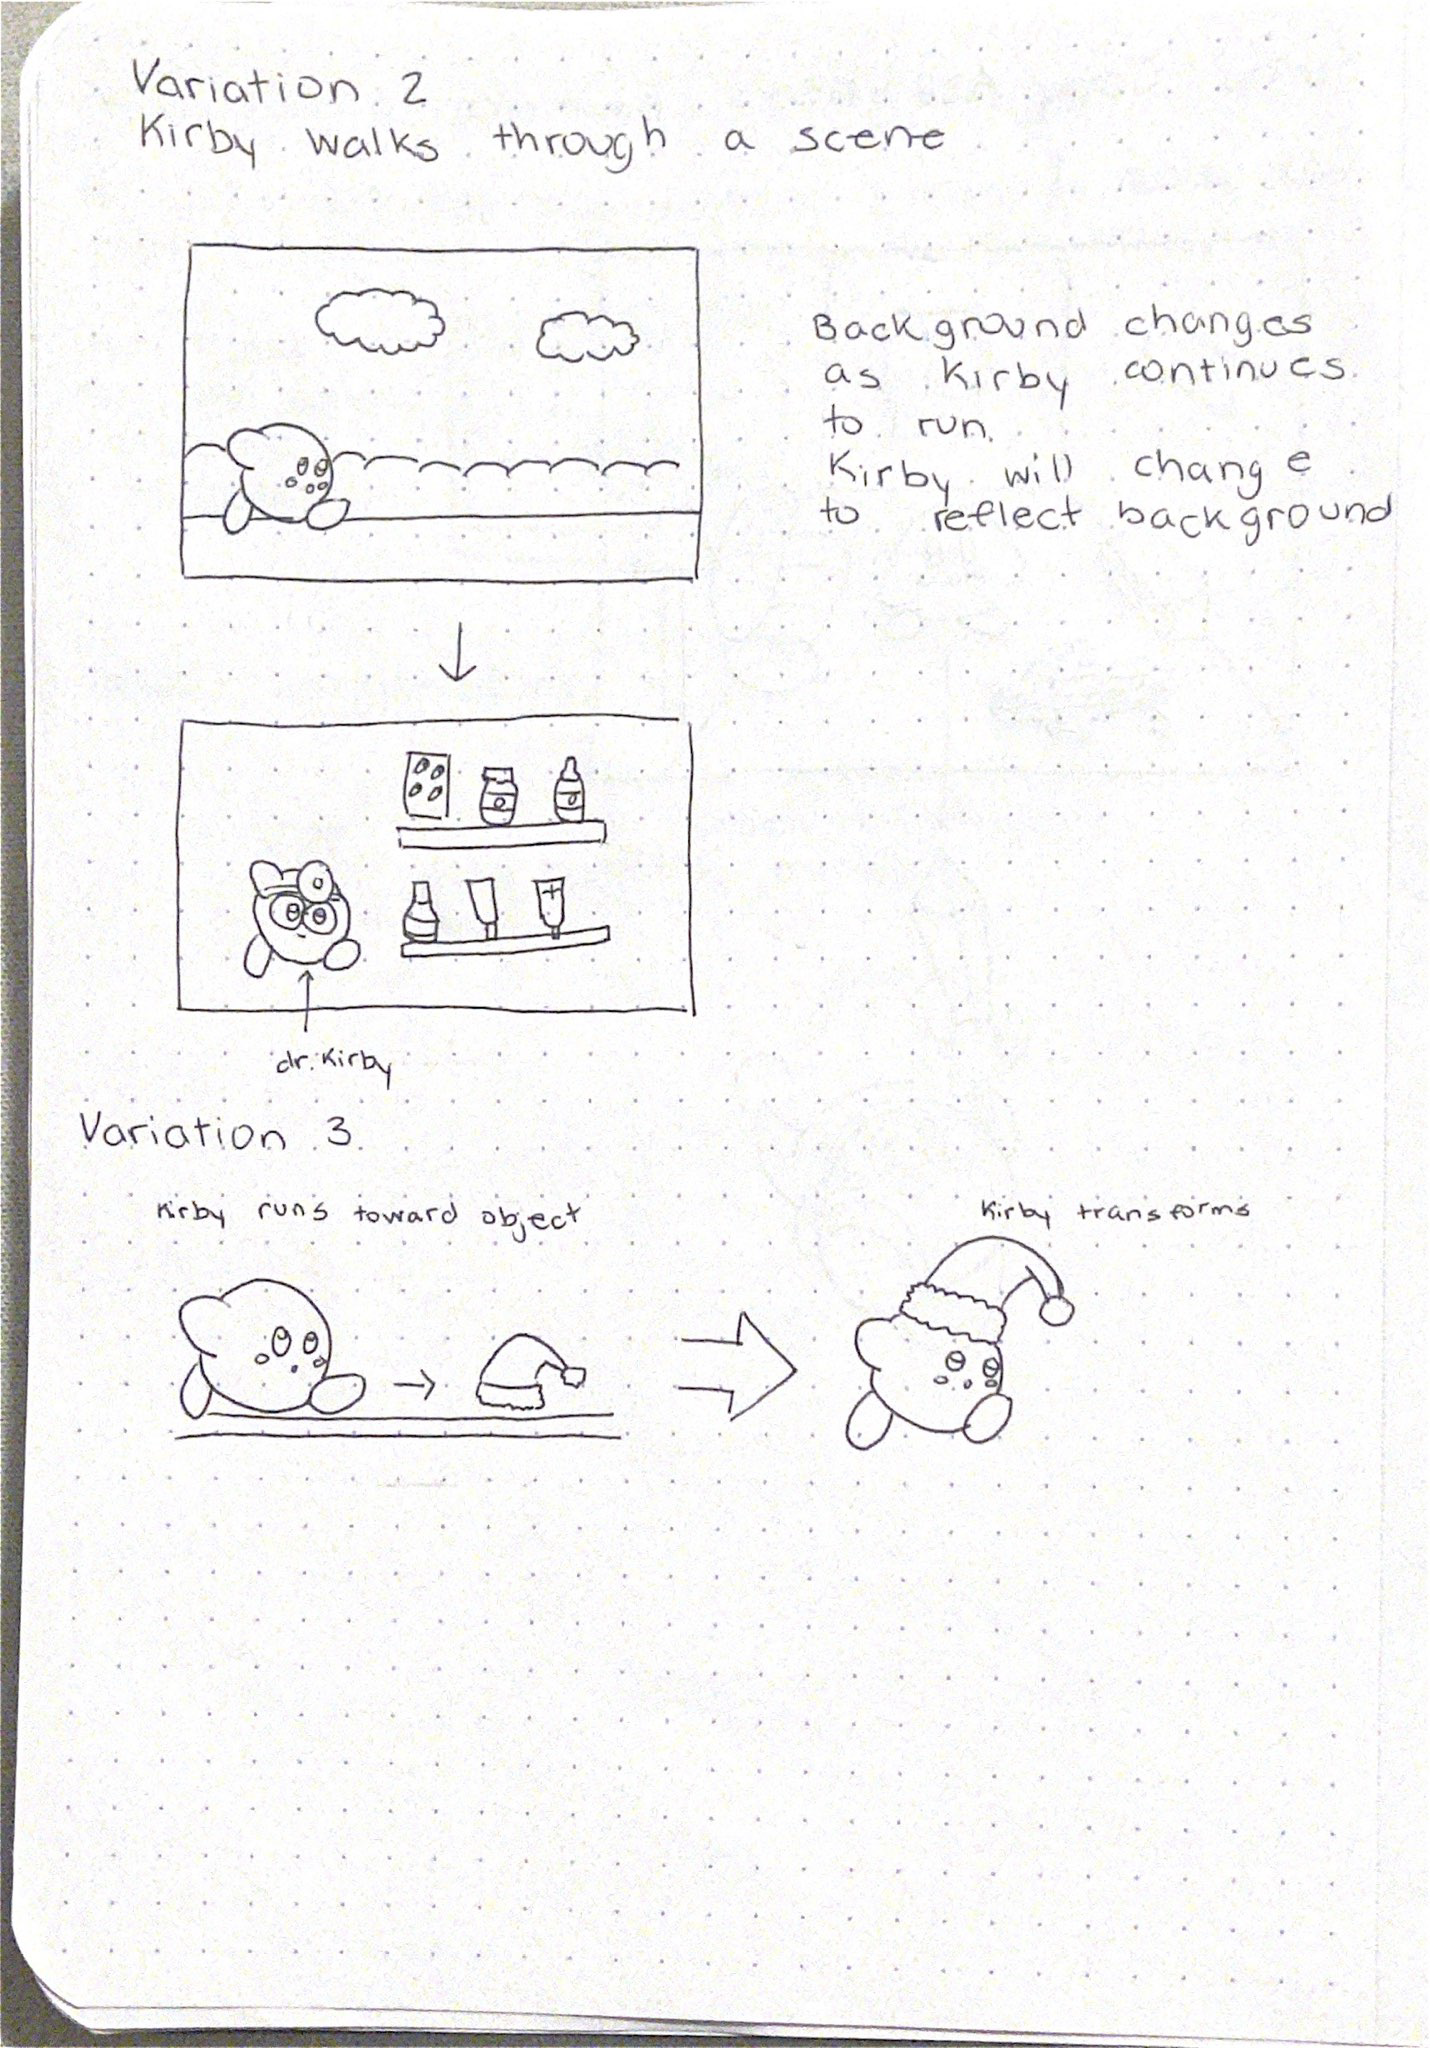 Variation 2
Kirby walks through a scene
Background changes
as Kirby continues
to run.
Kirby will change
to reflect background
dr. Kirby
Variation 3
Kirby runs toward object
Kirby transforms